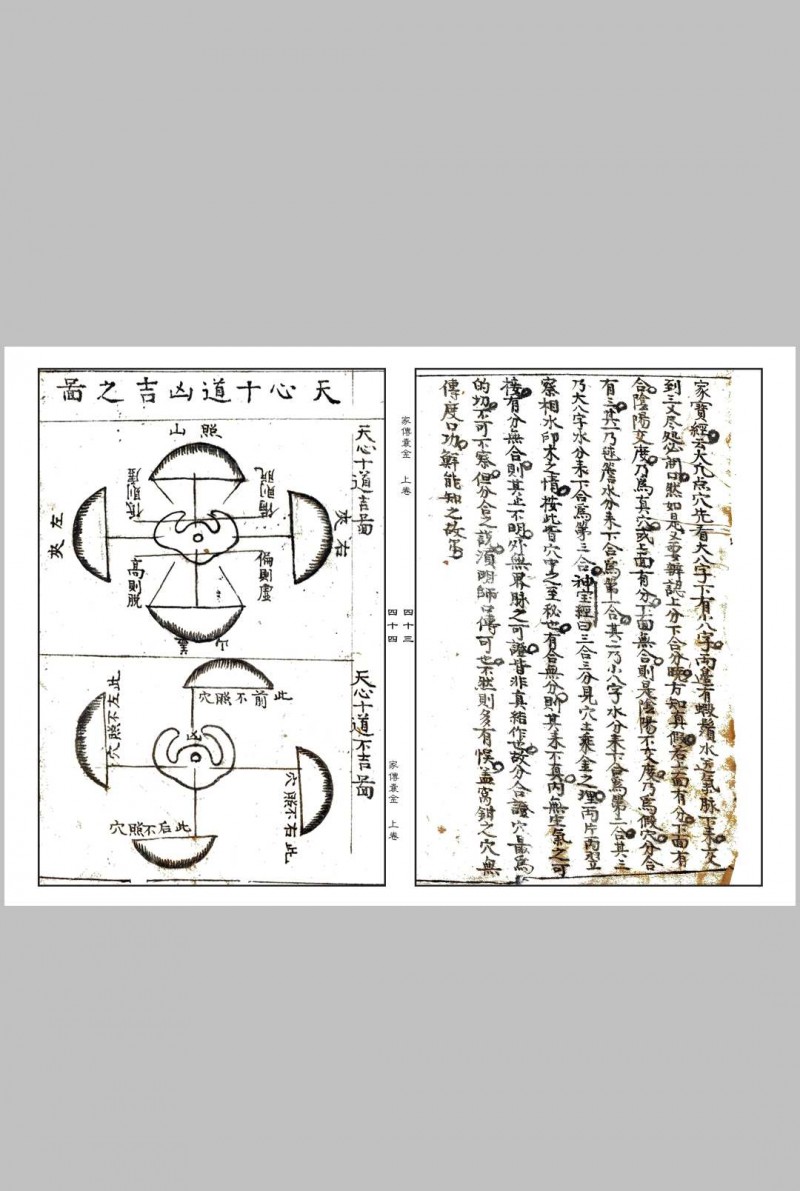 家寶經云大凡点穴先看大八字下有小八字兩邊有蝦鬚水送氣脉下來交
到三叉尽処必開口然如是又要辨認上分下合分曉方知真假若上面有分下面有
合陰陽交度乃爲真穴或上面有分下面無合則是陰陽不交度乃爲假穴分合
有三其一乃毬簷水分來下合爲第一合其二乃小八字水分來下合爲第二合其三
乃大八字水分來下合爲第三合神宝經曰三合三分見穴土乘金之理兩片兩翌
察相水印木之情按此皆穴中之至秘也有合無分則其來不真內無生氣之可
接有分無合則其止不明外無界脉之可證皆非真結作也故分合證穴最爲
的切不可不察但分合之說須明師口傳可也不然則多有悞盖窩鉗之穴無
傳度口功鮮能知之故耳
家傳囊金 上卷
四十三
四十四
家傳囊金 上卷
天心十道凶吉之啚
天心十道吉啚
照山
右夾
左夾
偏則虛
高則脫
天心十道不吉啚
此前不照穴
此左不照穴
凶
此右不照穴
此后不照穴